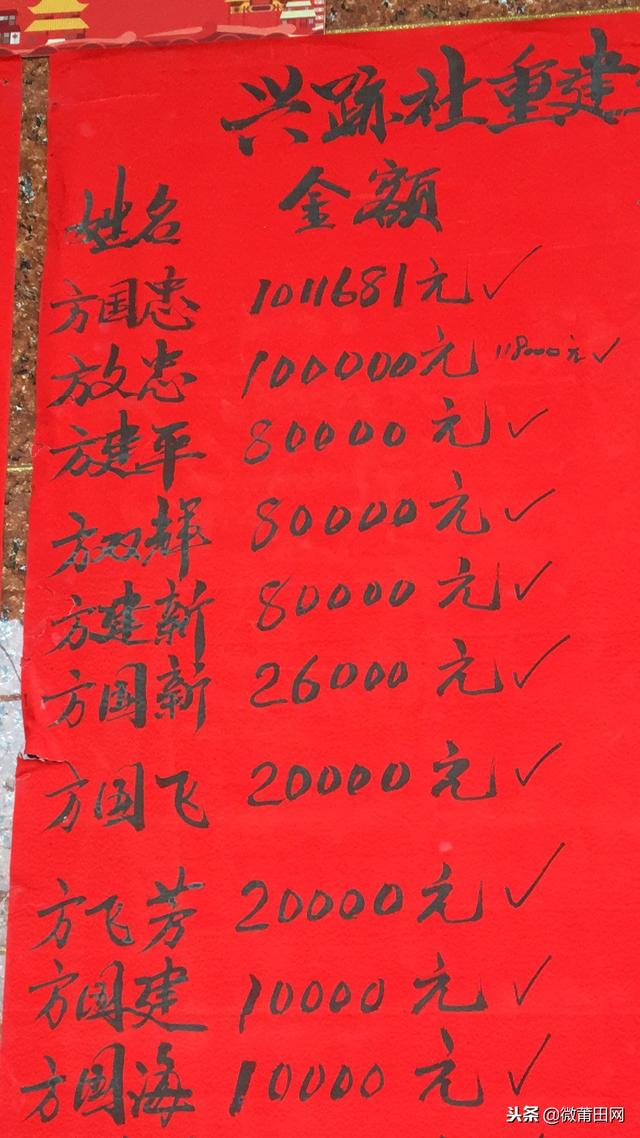 兴跡社重建
姓名 金额
方国忠 1011681元✓
方文忠 100000元 118000元✓
方建平 80000元✓
方双辉 80000元✓
方建新 80000元✓
方国新 26000元✓
方国飞 20000元✓
方飞芳 20000元✓
方国建 10000元✓
方国海 10000元✓
头条@微莆田网